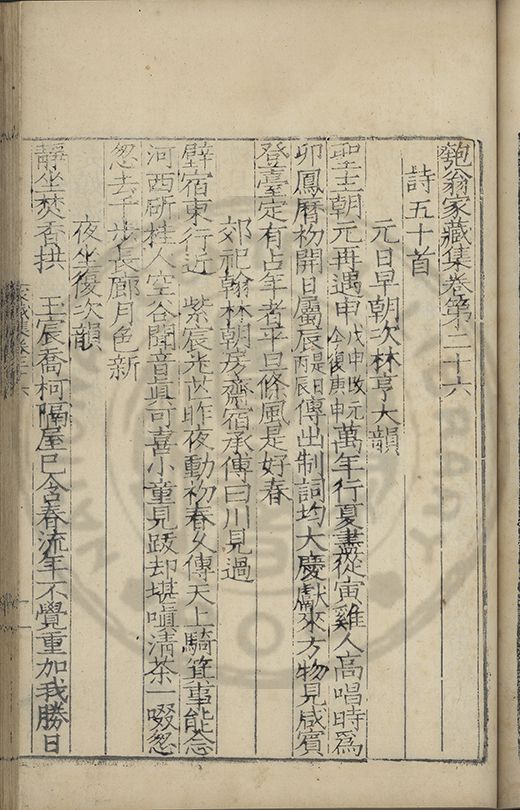 匏翁家藏集卷第二十六
詩五十首
元日早朝次林亨大韻
聖主朝元再遇申戊申改元今復庚申萬年行夏盡從寅雞人高唱時為
卯鳳曆初開日屬辰是日丙辰傳出制詞均大慶獻來方物見咸賓
登臺定有占年者平旦條風是好春
郊祀翰林朝房齋宿承傳曰川見過
壁宿東行近 紫宸光芒昨夜動初春久傳天上騎箕事能念
河西斫桂人空谷聞音真可喜小童見跋却堪嗔清茶一啜怱
怱去千步長廊月色新
夜坐復次韻
靜坐焚香拱 玉宸喬柯隔屋已含春流年不覺重加我勝日